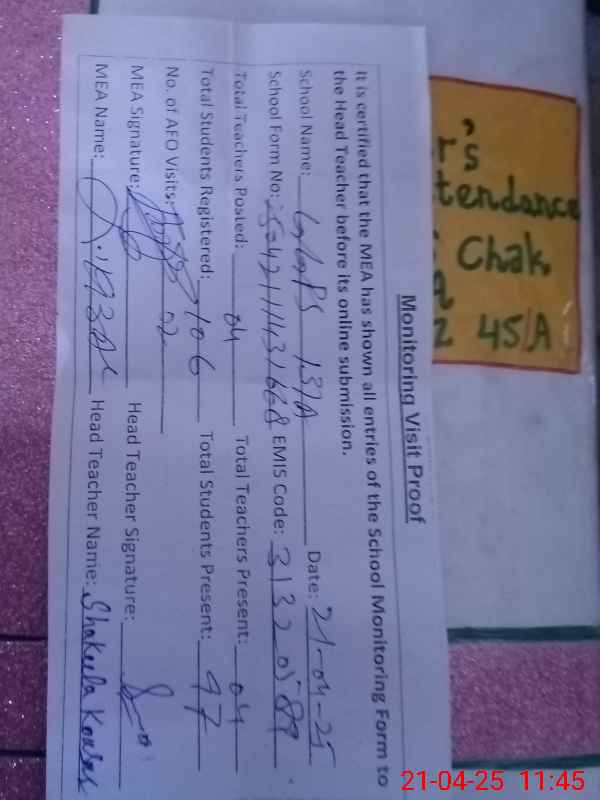 Monitoring Visit Proof
It is certified that the MEA has shown all entries of the School Monitoring Form to
the Head Teacher before its online submission.
School Name: GGPS 137A Date: 21-04-25
School Form No: EMIS Code: 31320589
Total Teachers Posted: 04 Total Teachers Present: 04
Total Students Registered: 106 Total Students Present: 97
No. of AEO Visits: 02
MEA Signature: Head Teacher Signature:
MEA Name: Head Teacher Name: Shakeela Kousar
r's
tendance
Chak
45/A
21-04-25 11:45